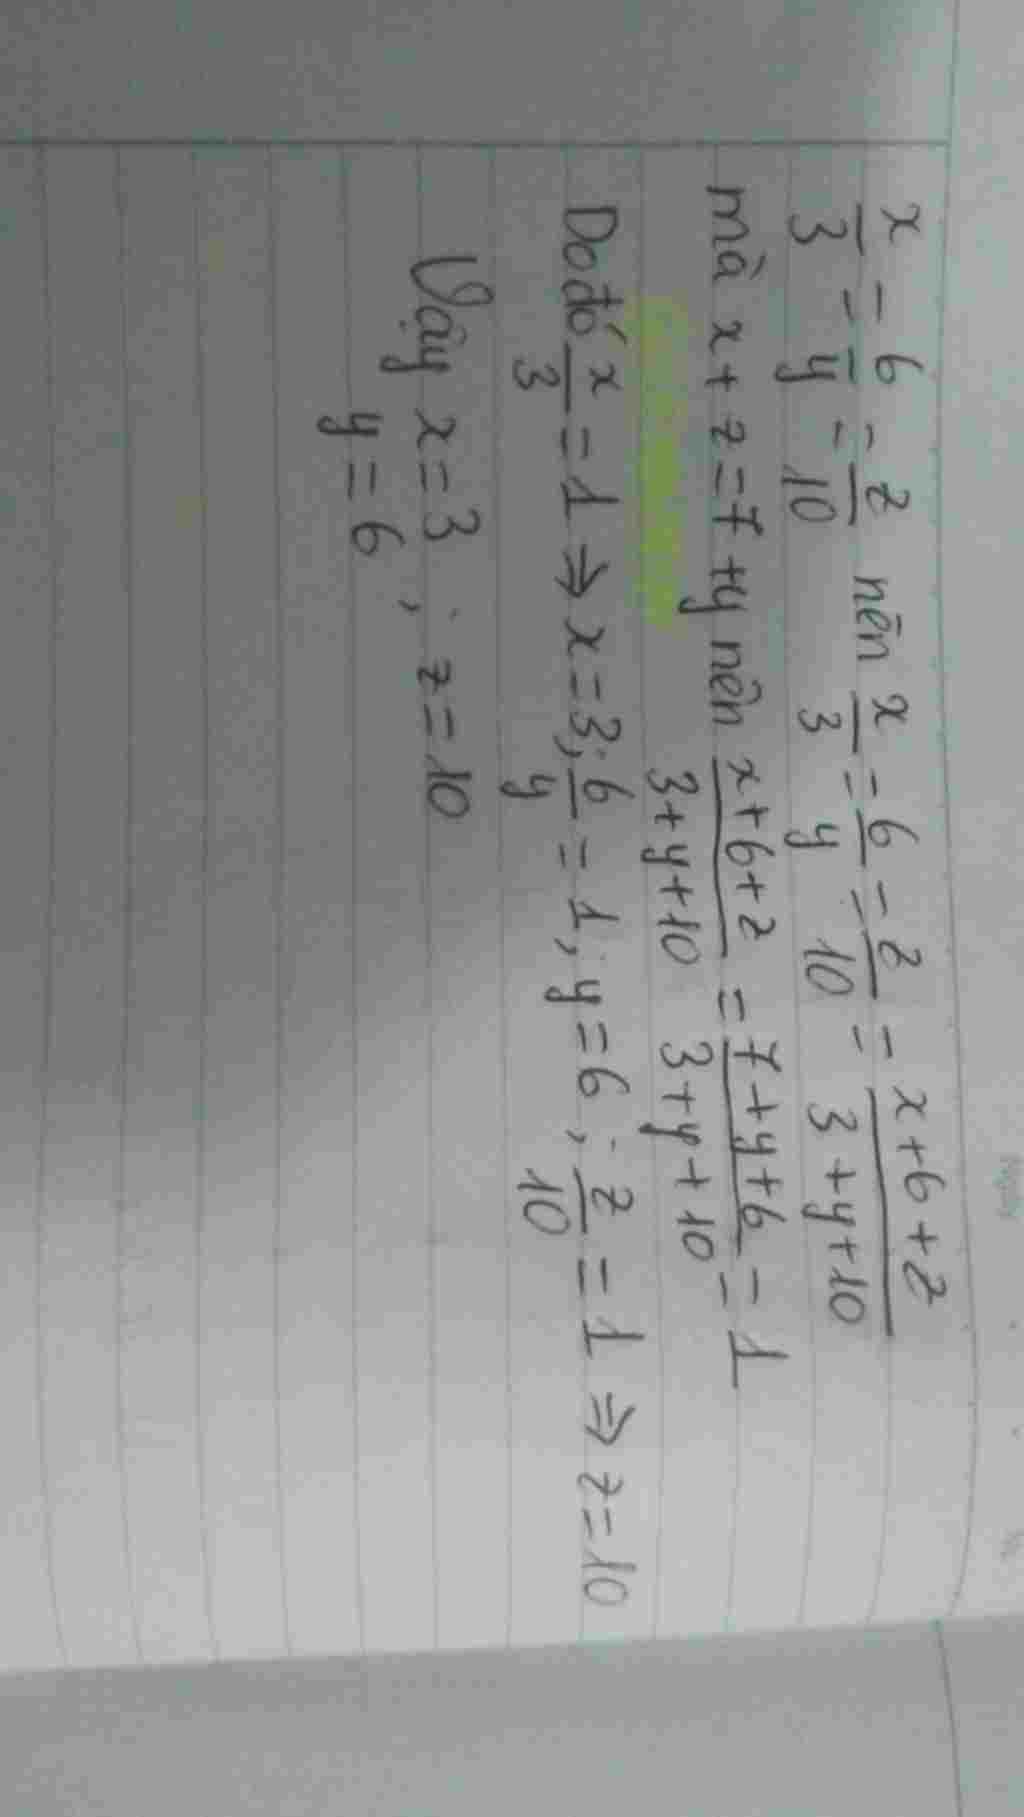 x/3 = 6/y = z/10 nên x/3 = 6/y = z/10 = x+6+z/3+y+10
mà x+z=7+y nên x+6+z/3+y+10 = 7+y+6/3+y+10 = 1
Do đó x/3 = 1 ⇒ x=3; 6/y = 1; y=6; z/10 = 1 ⇒ z=10
Vậy x=3; z=10
y=6